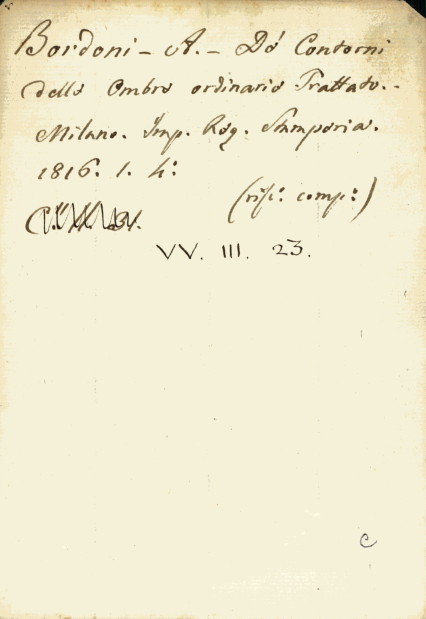 Bordoni - A. - De' Contorni
delle Ombre ordinarie Trattato. -
Milano. Imp. Reg. Stamperia.
1816. 1. 4:
(rifi: comp:)
VV. III. 23.
c